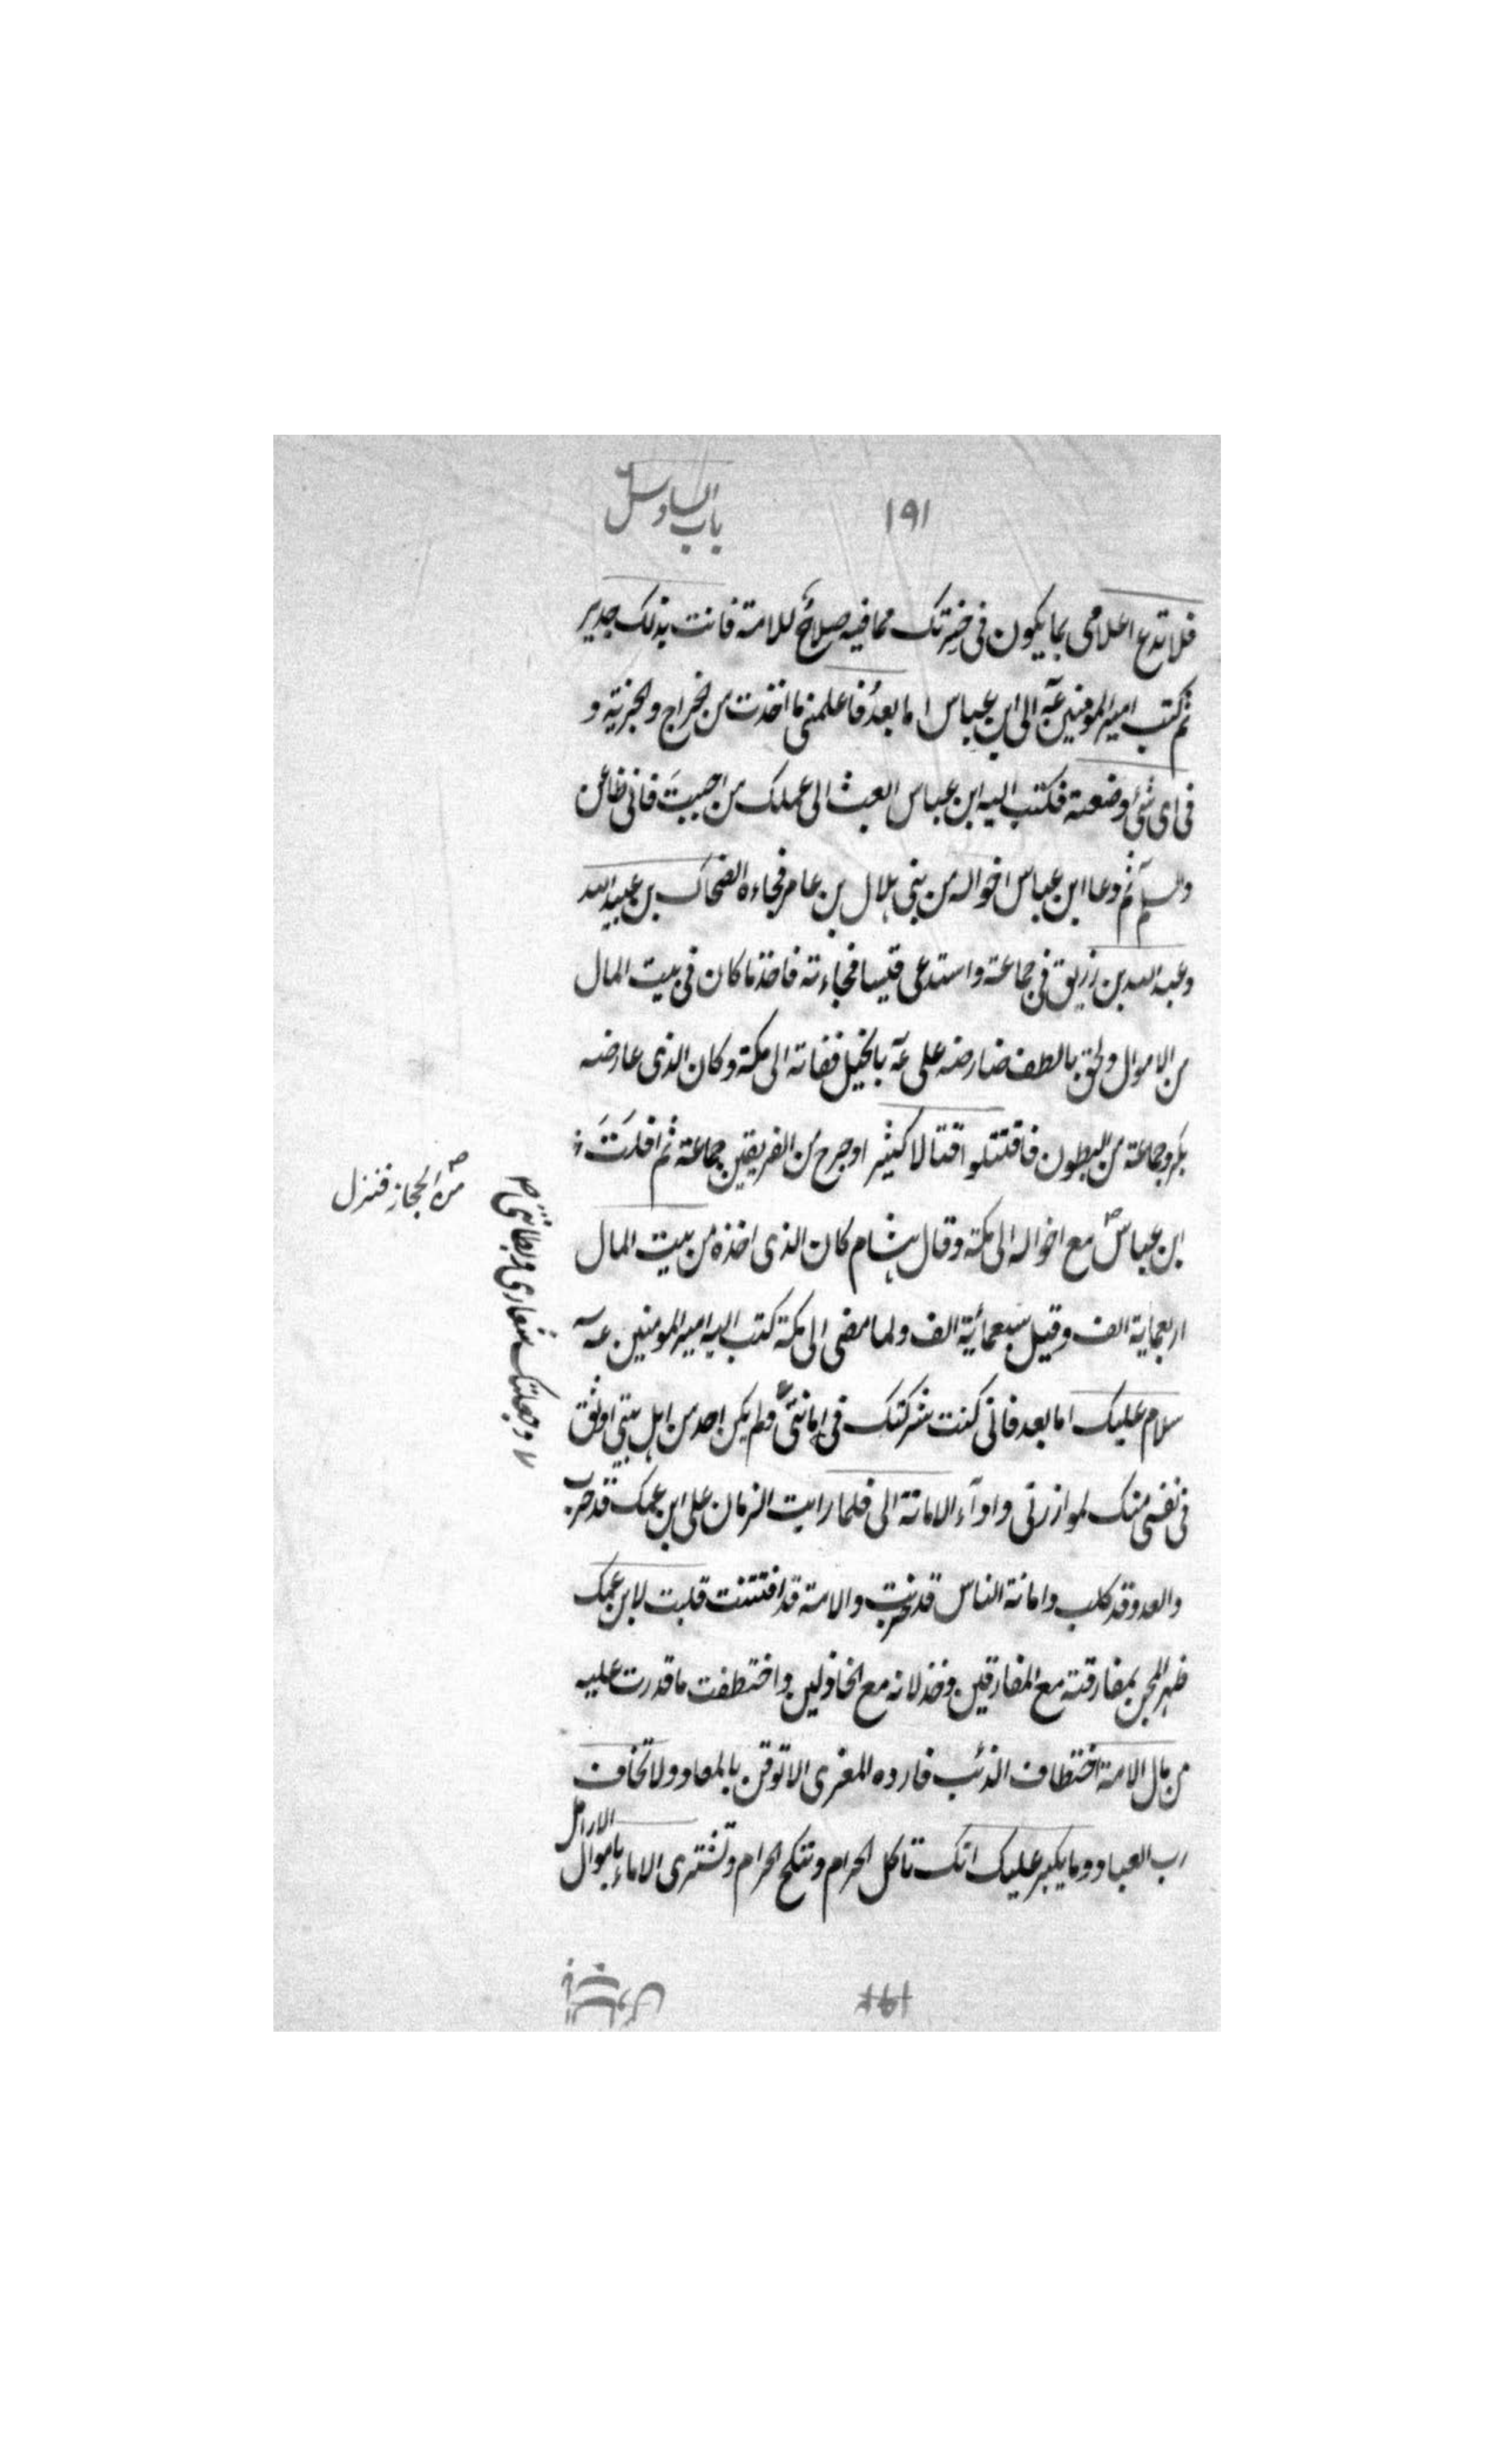 ١٩١
باب السادس
فلا تدع اعلامى بما يكون فى حضرتك مما فيه صلاح للامة فانت بذلك جدير
ثم كتب امير المومنين عه الى ابن عباس اما بعد فاعلمنى ما اخذت من الخراج والجزية و
فى اى شئ وضعته فكتب اليه ابن عباس ابعث الى عملك من احببت فانى ظاعن
والسلم ثم دعا ابن عباس اخواله من بنى هلال بن عامر فجاءه الضحاك بن عبيد الله
وعبد الله بن زريق فى جماعة واستدعى قيسا فجاءته فاخذ ما كان فى بيت المال
من الاموال ولحق بالطف فعارضه على عه بالخيل ففاته الى مكة وكان الذى عارضه
بكر وجماعة من البطون فاقتتلوا قتالا كثيرا وجرح من الفريقين جماعة ثم افلت
ابن عباس مع اخواله الى مكة وقال هشام كان الذى اخذه من بيت المال
اربعماية الف وقيل سبعمائة الف ولما مضى الى مكة كتب اليه امير المومنين عه
سلام عليك اما بعد فانى كنت شركتك فى امانتى ولم يكن احد من اهل بيتى اوثق
فى نفسى منك لموازرتى واداء الامانة الى فلما رايت الزمان على ابن عمك قد حرب
والعدو قد كلب وامانة الناس قد خربت والامة قد افتتنت قلبت لابن عمك
ظهر المجن بمفارقته مع المفارقين وخذلانه مع الخاذلين واختطفت ما قدرت عليه
من مال الامة اختطاف الذئب فارده المعزى الا توقن بالمعاد ولا تخاف
رب العباد وما يكبر عليك انك تاكل الحرام وتنكح الحرام وتشترى الاماء باموال الارامل
من الحجاز فنزل
وجعلتك شعارى وبطانتى